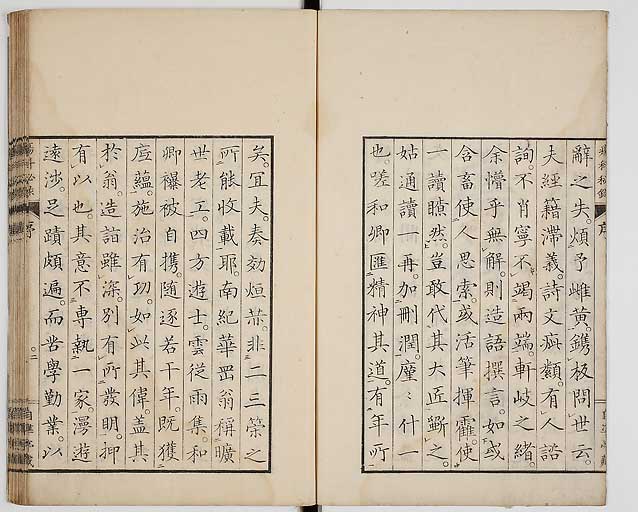 辭之失。煩予雌黃。鐫板問世云。
夫經籍滯義。詩文瘢纇。有人諮
詢不肖。寧不竭兩端。軒岐之緒。
余懵乎無解。則造語撰言。如或
含畜使人思索。或活筆揮霍。使
一讀瞭然。豈敢代其大匠斵之。
姑通讀一再。加刪潤。廑〻什一
也。嗟和卿匯精神其道。有年所
矣。宜夫奏効烜爀。非二三策之
所能收載耶。南紀華岡翁稱曠
世老工。四方遊士。雲從雨集。和
卿襆被自攜。隨逐若干年。既獲
底蘊。施治有功。如此其偉。蓋其
於翁。造詣雖深。別有所發明。抑
有以也。其意不專執一家。漫遊
遠涉。足蹟頗遍。而苦學勤業。以
序
序
二